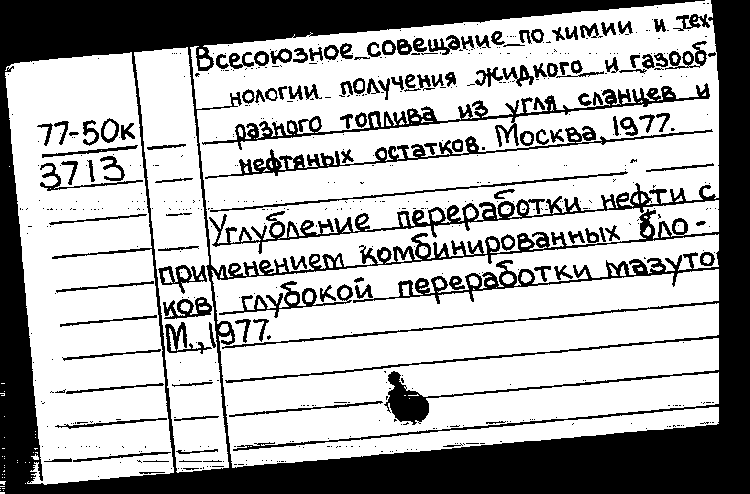 Всесоюзное совещание по химии и тех-
нологии получения жидкого и газооб-
разного топлива из угля, сланцев и
нефтяных остатков. Москва, 1977.
77-50к
3713
Углубление переработки нефти с
применением комбинированных бло-
ков глубокой переработки мазуто
М., 1977.